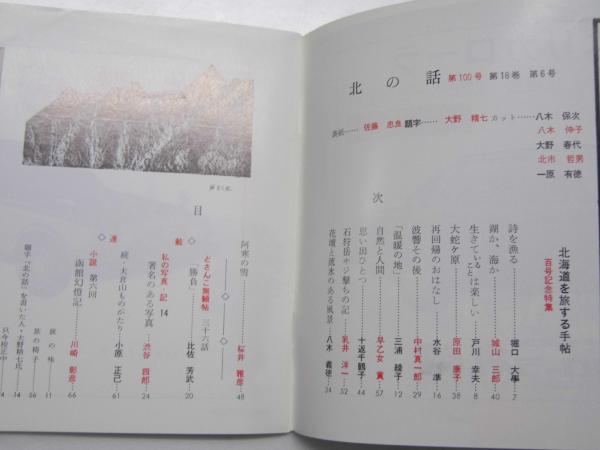 北の話 第100号 第18巻 第6号
表紙…… 佐藤 忠良 題字…… 大野 精七 カット……八木 保次
八木 伸子
大野 春代
北市 哲男
一原 有徳
目 次
北海道を旅する手帖
百号記念特集
詩を漁る……堀口 大學…7
湖か、海か……城山 三郎…40
生きていることは楽しい……戸川 幸夫…8
大蛇ケ原……原田 康子…38
再回帰のおはなし……水谷 準…16
波響その後……中村真一郎…29
「温暖の地」……三浦 綾子…12
自然と人間……早乙女 貢…57
思い出ひとつ……十返千鶴子…44
石狩岳キジ撃ちの記……乳井 洋一…52
花壇と流氷のある風景……八木 義徳…34
阿寒の雪……桜井 雅彦…48
どさんこ無頼帖 三十六話
「勝負」……比佐 芳武…20
私の写真・記 14
著名のある写真……渋谷 四郎…24
連 載
続・大倉山ものがたり……小原 正己…61
小説 第六回
函館幻燈記……川崎 彰彦…66
旅の味……11
旅の椅子……56
題字「北の話」を書いた人・大野精七氏……14
只今校正中……74